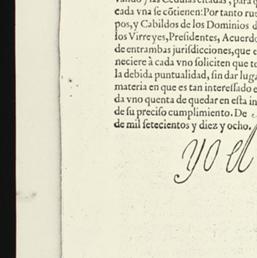 cada vna se cōtienen: Por tanto ru
pos, y Cabildos de los Dominios d
los Virreyes, Presidentes, Acuerdo
de entrambas jurisdicciones, que e
neciere à cada vno soliciten que te
la debida puntualidad, sin dar lugar
materia en que es tan interessado e
da vno quenta de quedar en esta in
de su preciso cumplimiento. De
de mil setecientos y diez y ocho.
yo el